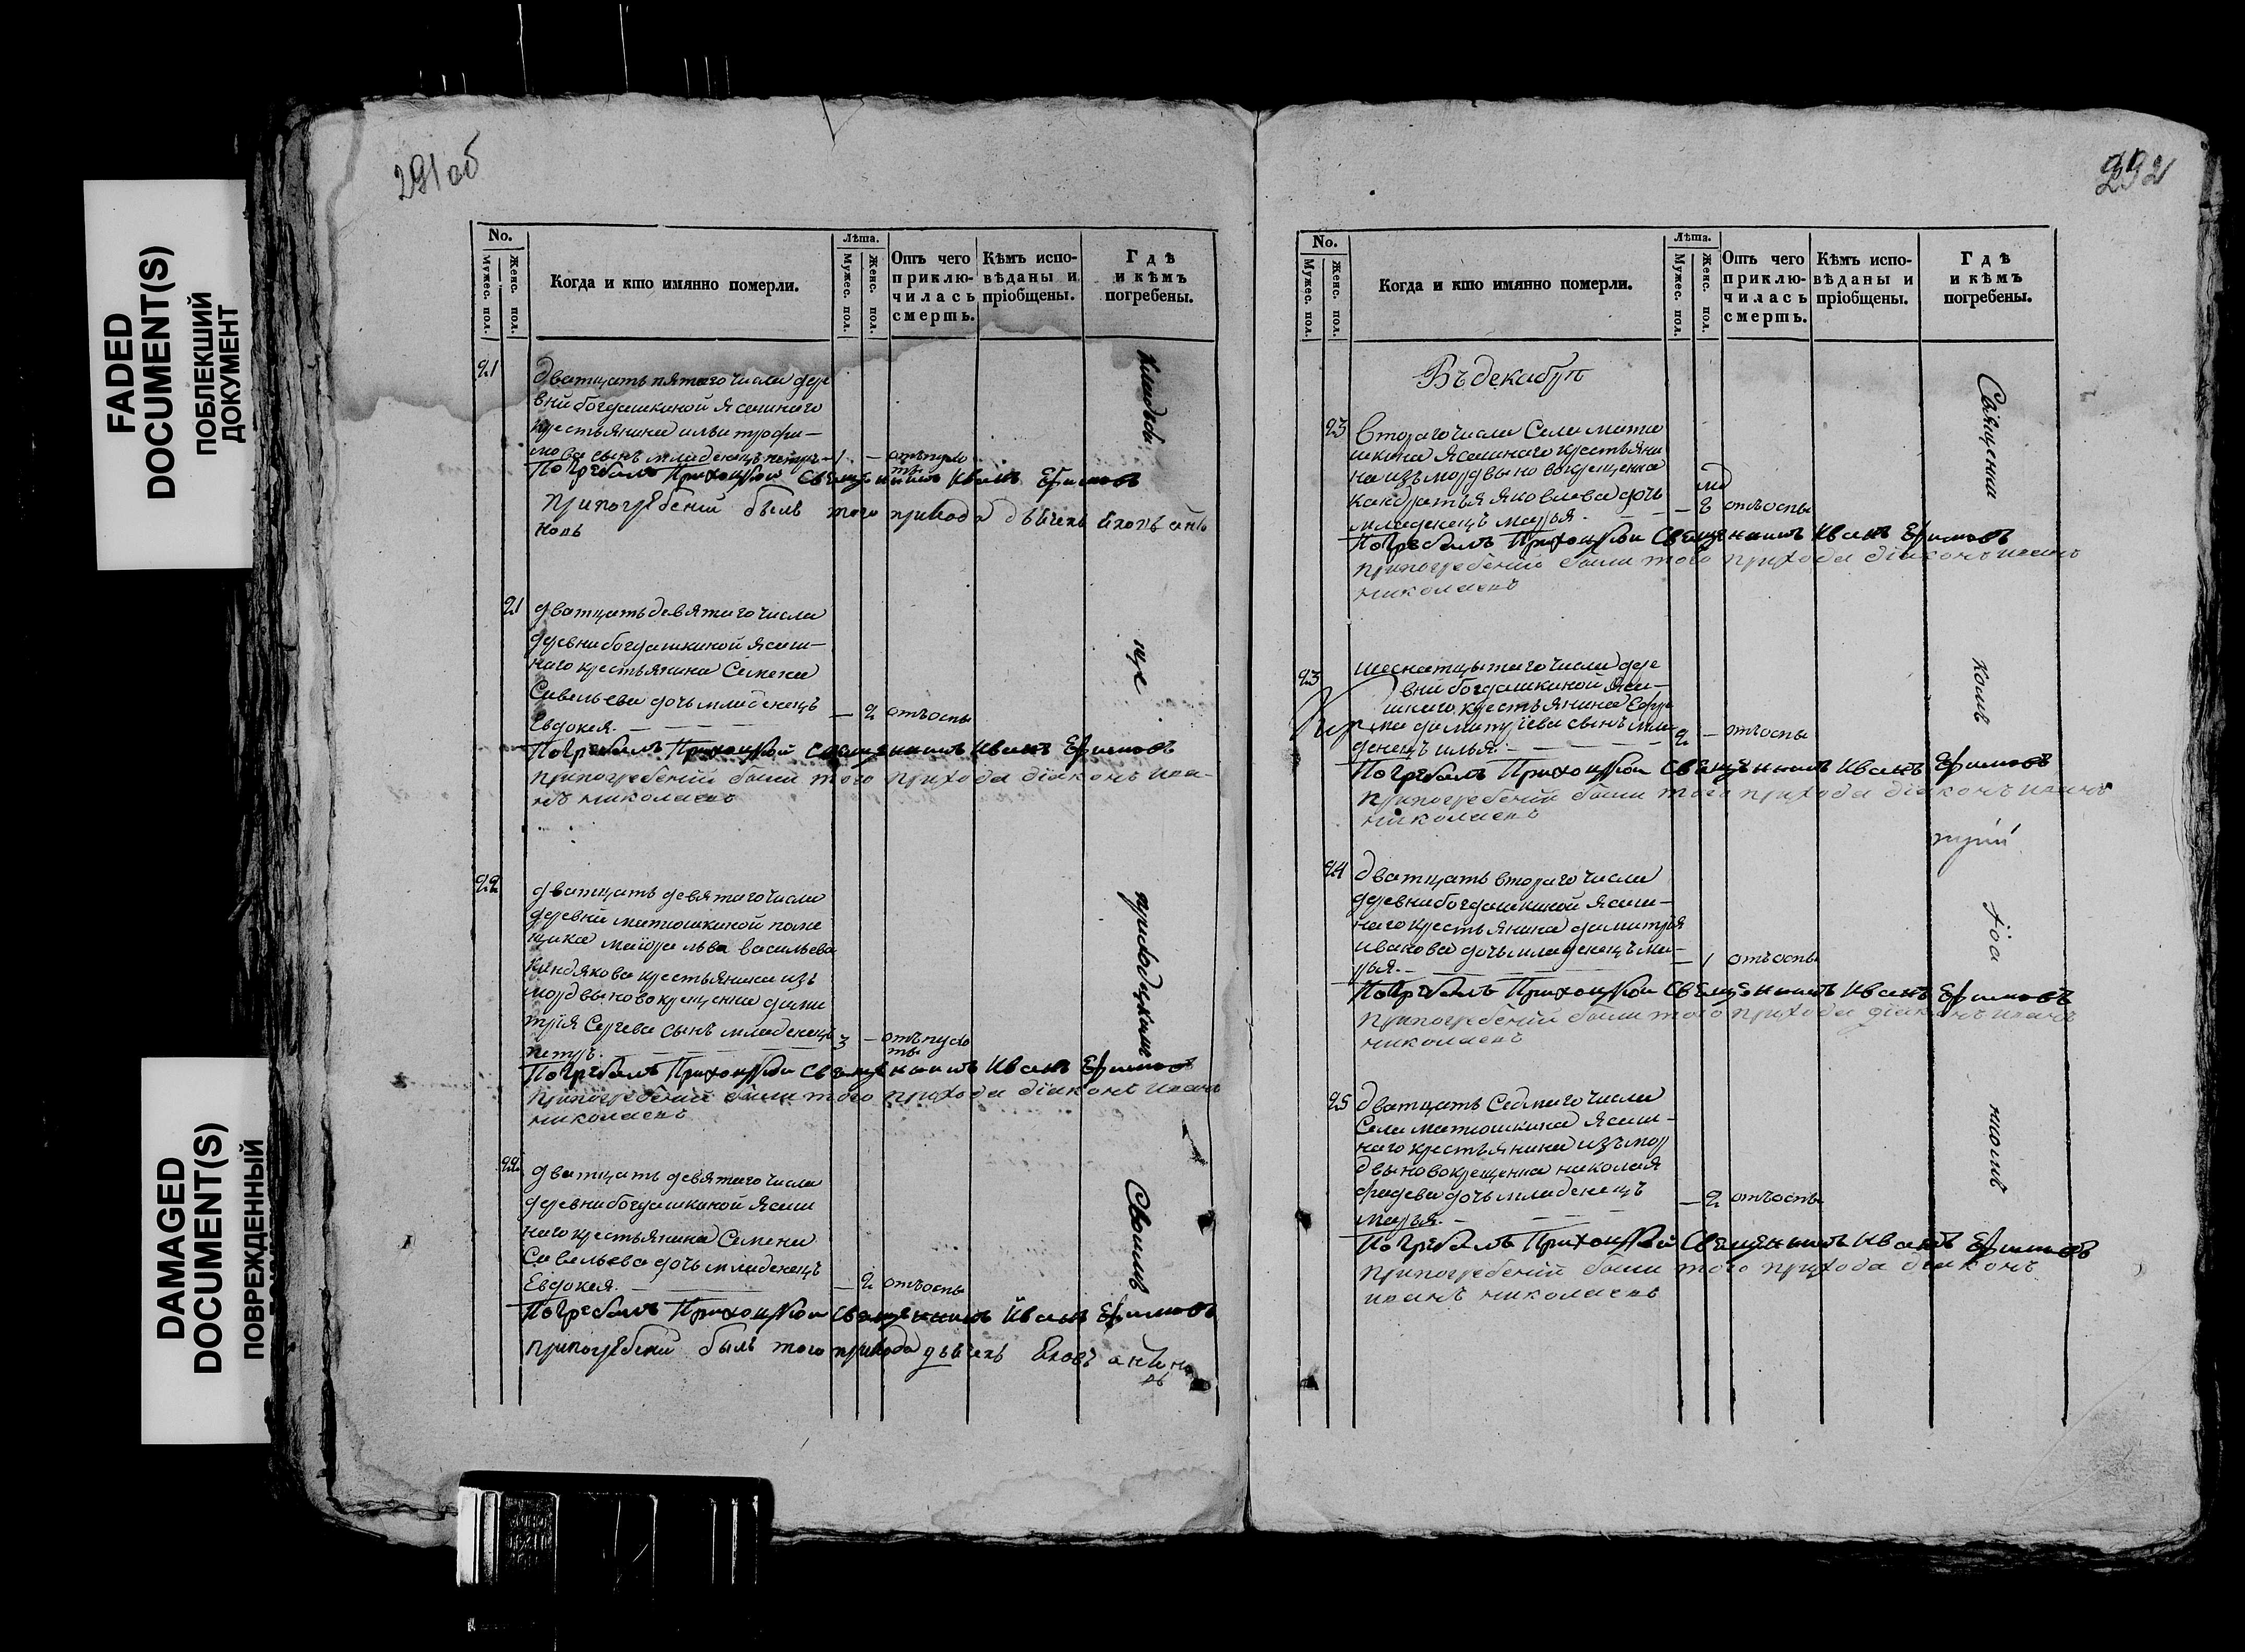 FADED
DOCUMENT(S)
ПОБЛЕКШИЙ
ДОКУМЕНТ
DAMAGED
DOCUMENT(S)
ПОВРЕЖДЕННЫЙ
291 об
No.
Мужес. пол.
Женс. пол.
Когда и кто имянно померли.
Лѣта.
Мужес. пол.
Женс. пол.
Отъ чего приклю-
чилась смерть.
Кѣмъ испо-
вѣданы и
пріобщены.
Гдѣ
и кѣмъ
погребены.
21
дватцать пятаго числа дере
вни богдашкиной ясашнаго
крестьянина ильи трофи-
мова сынъ младенецъ 1 -
Погребалъ Приходской Священникъ Иванъ Ефимовъ
при погребении былъ того прихода
21
дватцать девятаго числа
деревни богдашкиной ясаш-
наго крестьянина Семена
Савельева дочь младенецъ
Евдокея. - 2 отъ оспы
Погребалъ Приходской Священникъ Иванъ Ефимовъ
при погребеніи были того прихода діаконъ ива-
нъ николаевъ
22
дватцать девятаго числа
деревни матюшкиной поме
щика маиора льва васильева
Киндякова крестьянина изъ
мордвы новокрещенна дими
трія Сергева сынъ младенецъ
петръ. 3 -
Погребалъ Приходской Священникъ Иванъ Ефимовъ
при погребеніи были того прихода діаконъ иванъ
николаевъ
22
дватцать девятаго числа
деревни богдашкиной ясаш
наго крестьянина Семена
Савельева дочь младенецъ
Евдокея. - 2 отъ оспы
Погребалъ Приходской Священникъ Иванъ Ефимовъ
при погребении былъ того прихода
Кладби
ще
приходскимъ
232
No.
Мужес. пол.
Женс. пол.
Когда и кто имянно померли.
Лѣта.
Мужес. пол.
Женс. пол.
Отъ чего
приклю-
чилась
смерть.
Кѣмъ испо-
вѣданы и
пріобщены.
Гдѣ
и кѣмъ
погребены.
Въ декабрѣ
23
втораго числа Села матю
шкина ясашнаго крестьяни
на изъ мордвы новокрещенна
кандратья яковлева дочь
младенецъ марья. - отъ оспы
Погребалъ Приходской Священникъ Иванъ Ефимовъ
при погребеніи были того прихода діаконъ иванъ
николаевъ
23
шеснатцатаго числа дере
вни богдашкиной яса-
шнаго крестьянина Ефре
ма димитріева сынъ мла
денецъ илья. 2 - отъ оспы
Погребалъ Приходской Священникъ Иванъ Ефимовъ
при погребеніи были того прихода діаконъ иванъ
николаевъ
24
дватцать втораго числа
деревни богдашкиной ясаш-
наго крестьянина димитрія
иванова дочь младенецъ ма-
рья. - 1 отъ оспы
Погребалъ Приходской Священникъ Иванъ Ефимовъ
при погребеніи были того прихода діаконъ иванъ
николаевъ
25
дватцать Седмаго числа
Села матюшкина ясаш-
наго крестьянина изъ мор
двы новокрещенна николая
фадеева дочь младенецъ
марья. - 2 отъ оспы
Погребалъ Приходской Священникъ Иванъ Ефимовъ
при погребеніи были того прихода діаконъ
иванъ николаевъ
Священни
комъ